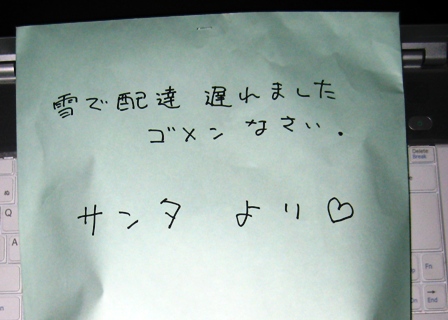 雪で配達 遅れました
ゴメンなさい.
サンタ より♡
Delete
Break
Q
A
End